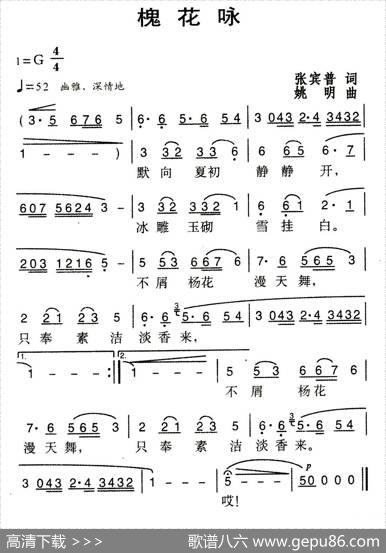 槐花咏
1=G 4/4
♩=52 幽雅、深情地
张宾普 词
姚明 曲
(3·5 6765 | 6·6·6 54 | 3 043 2·4 3432
1 - - -) | 3 32 33 6 | 6·5 35 1 2·
默向夏初 静静开,
607 5624 3 - | 3 32 332 1 | 6 61 2·1
冰雕玉砌 雪挂白。
203 1216 5 - | 5 53 667 6 | 7·6 565 3
不屑杨花 漫天舞,
2 21 23 5 | 6·6·6 54 | 3 043 2·4 3432
只奉素洁淡香来,
1. 2.
1 - - - :‖ 1 - - - | 5 553 667 6
不屑 杨花
7·6 565 3 | 2 21 23 5 | 6·6·6 54
漫天舞, 只奉素洁淡香来。
3 043 2·4 3432 | 1 - - - | 5 - - - | 50 0 0 0 ‖
哎!
高清下载 >>>
歌谱八六 www.gepu86.com